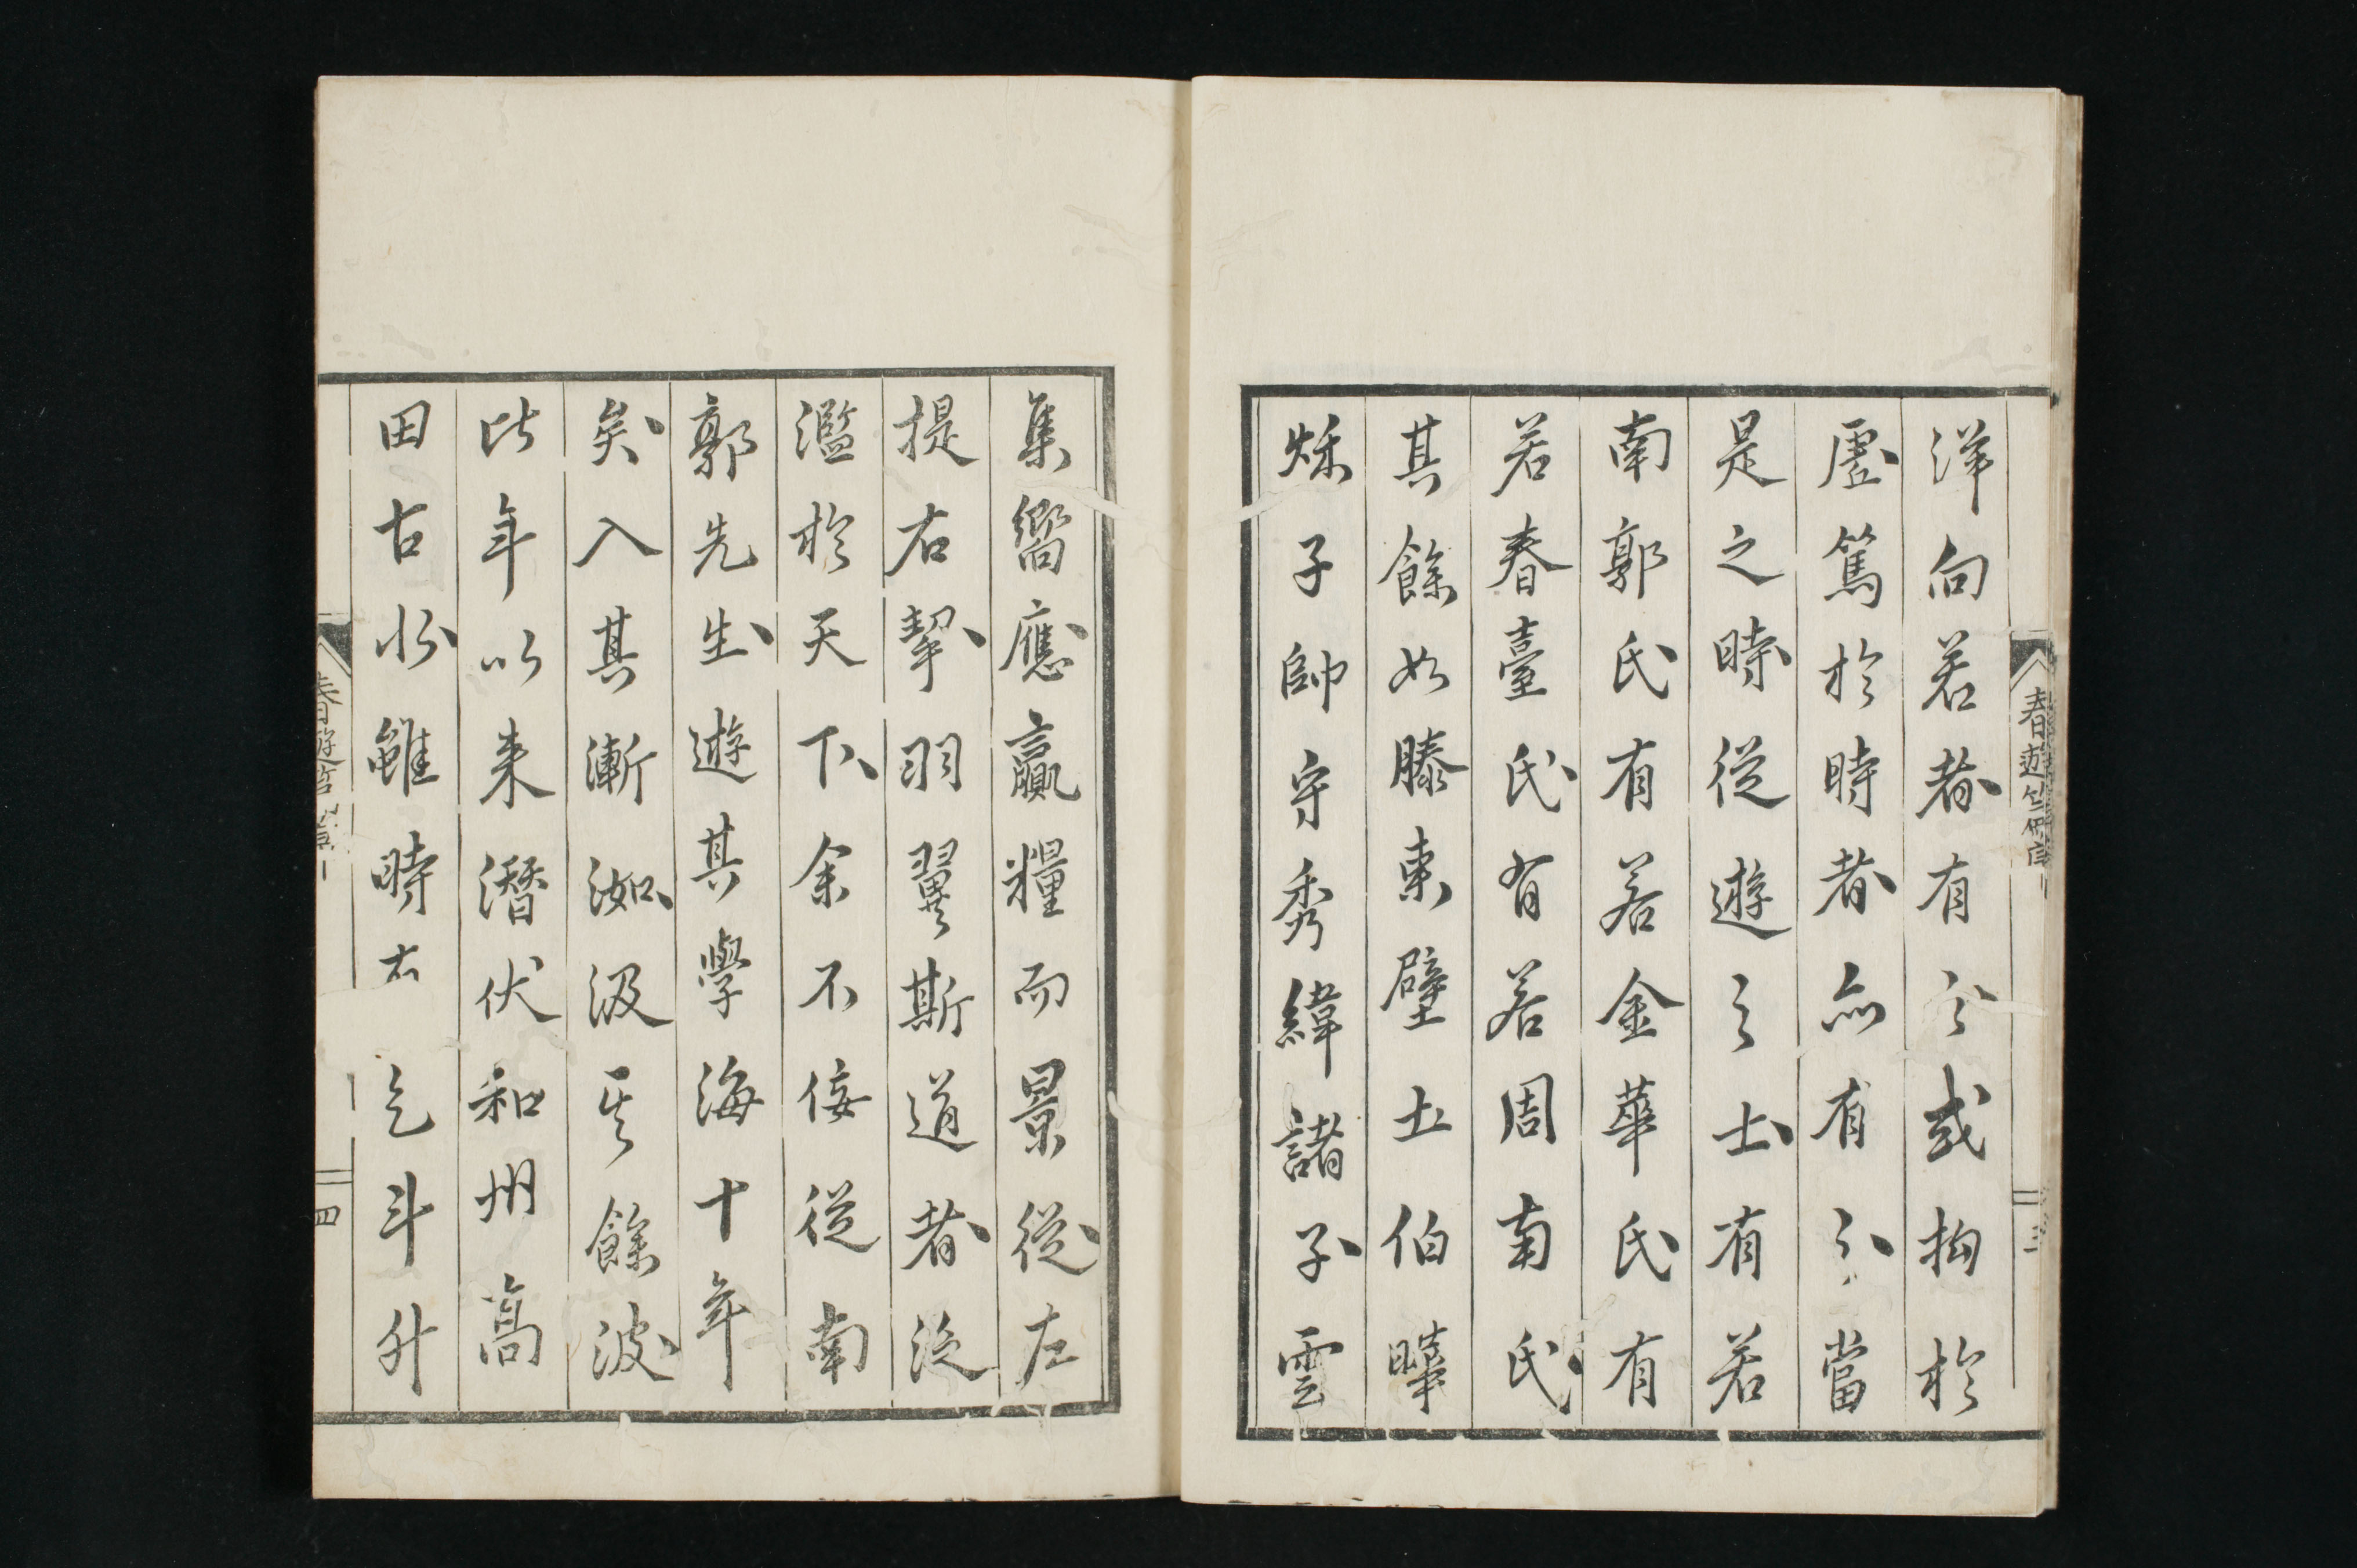 洋向若者有之或拘於
虛篤於時者亦有之當
是之時從遊之士有若
南郭氏有若金華氏有
若春臺氏有若周南氏
其餘如滕東壁土伯曄
烁子帥守秀緯諸子雲
集嚮應贏糧而景從左
提右挈羽翼斯道者泛
濫於天下余不佞從南
郭先生遊其學海十年
矣入其漸洳汲其餘波
比年以來潛伏和州高
田古 雖時 乞斗升
四